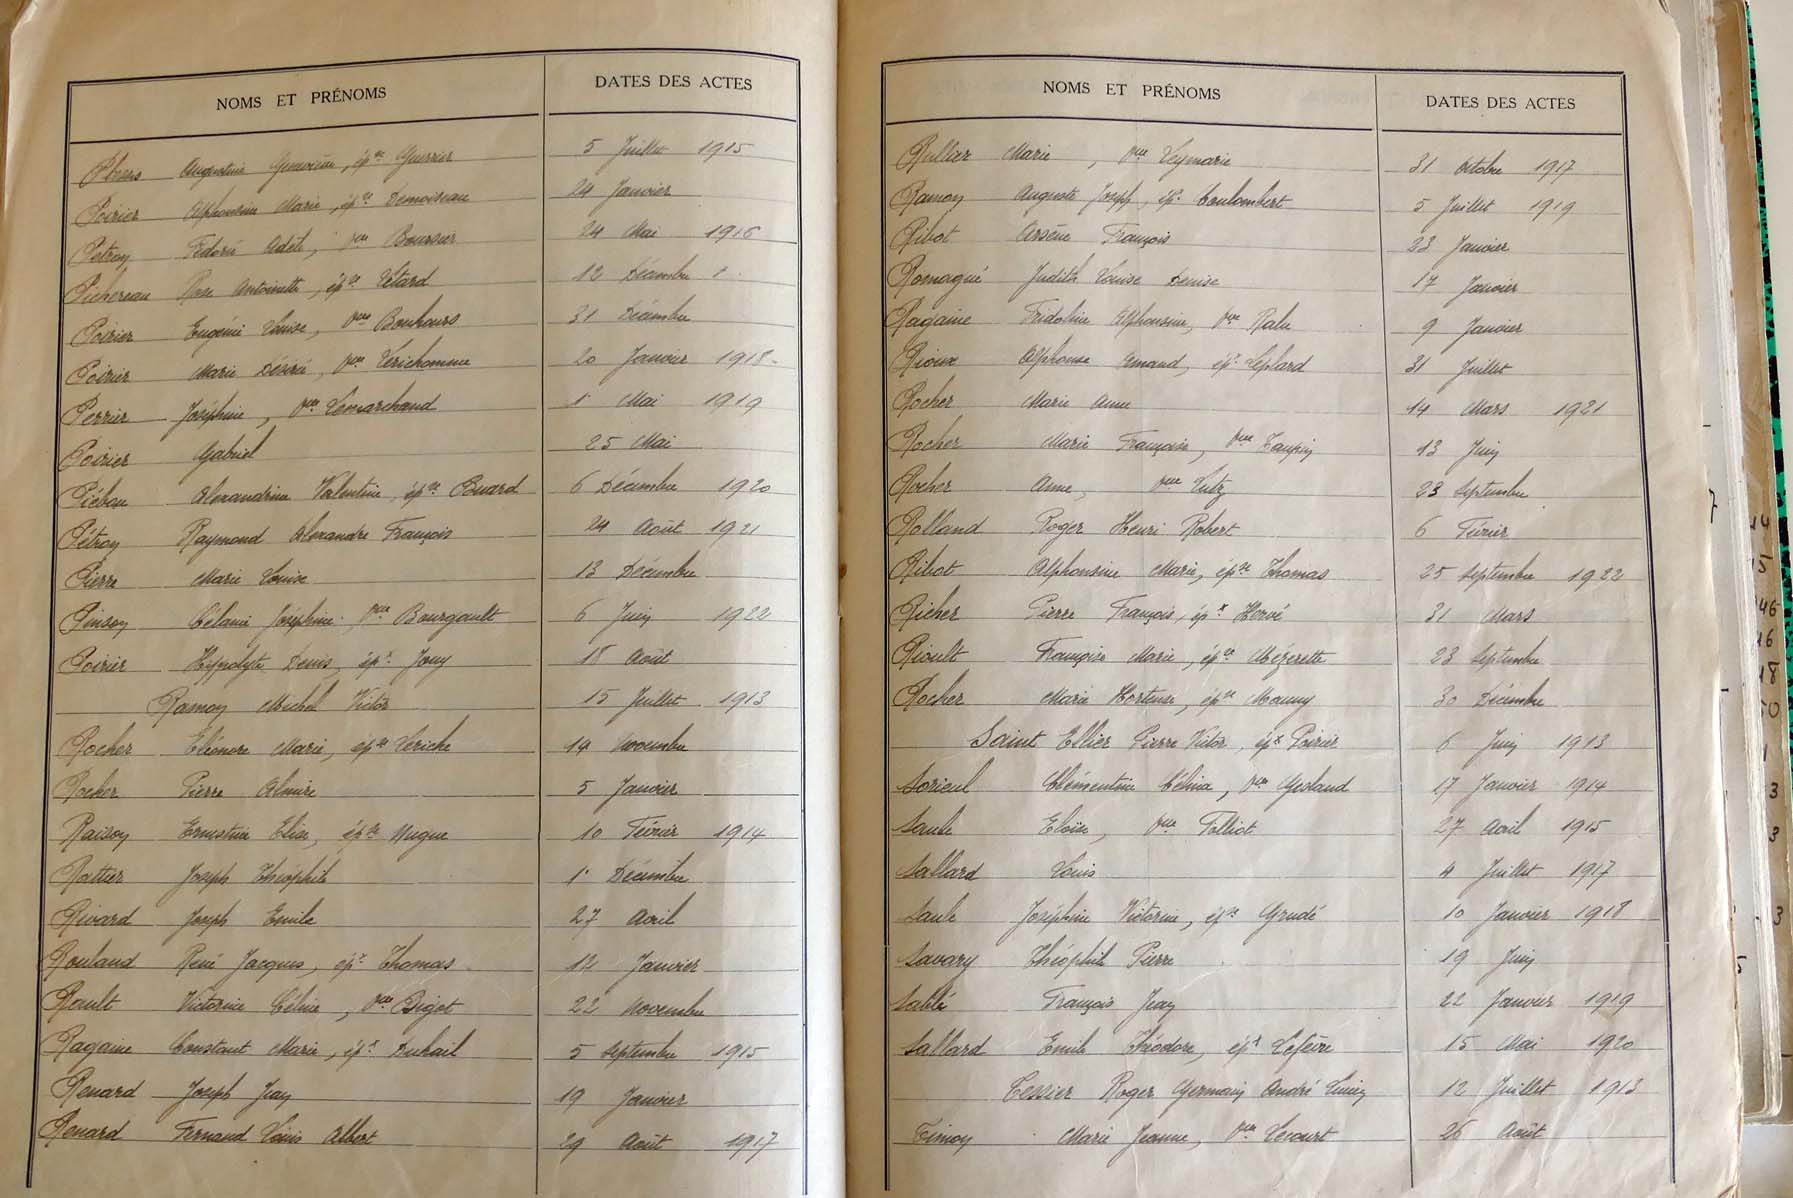 NOMS ET PRÉNOMS DATES DES ACTES
Augustine épse Guerrier 5 Juillet 1915
Poirier Alphonsine Marie, épse Demoiseau 24 Janvier
Pétron Adèle, vve Boursier 24 Mai 1916
Pichereau Rose Antoinette, épse Létard 12 Décembre
Poirier Eugénie Louise, vve Bouhours 31 Décembre
Poirier Marie Désirée, vve Lerichomme 20 Janvier 1918
Perrier Joséphine, vve Lemarchand 1er Mai 1919
Poirier Gabriel 25 Mai
Alexandrine Valentine, épse 6 Décembre 1920
Pétron Raymond Alexandre François 24 Août 1921
Pierre Marie Louise 13 Décembre
Pinson Joséphine vve Bourgault 6 Juin 1922
Poirier Hyppolyte Denis, épx Jouy 18 Août
Ramon Michel Victor 15 Juillet 1913
Rocher Eléonore Marie, épse Leriche 14 Novembre
Rocher Pierre Almire 5 Janvier
Raison Ernestine Elise, épse Hugue 10 Février 1914
Rattier Joseph Théophile 1er Décembre
Rivard Joseph Emile 27 Avril
Rouland René Jacques, épx Thomas 12 Janvier
Rault Victorine Céline, vve Bigot 22 Novembre
Ragaine Constant Marie, épx Duhail 5 Septembre 1915
Renard Joseph Jean 19 Janvier
Renard Fernand Louis Albert 29 Août 1917
NOMS ET PRÉNOMS DATES DES ACTES
Rallier Marie, vve Leymarie 31 Octobre 1917
Ramon Auguste Joseph, épx Coulombert 5 Juillet 1919
Ribot Arsène François 23 Janvier
Romagné Judith Louise Denise 17 Janvier
Ragaine Fridoline Alphonsine, vve Ralu 9 Janvier
Rioux Alphonse Amand, épx Leplard 31 Juillet
Rocher Marie Anne 14 Mars 1921
Rocher Marie Françoise, vve Taupin 13 Juin
Rocher Anne, vve Lutz 23 Septembre
Rolland Roger Henri Robert 6 Février
Ribot Alphonsine Marie, épse Thomas 25 Septembre 1922
Richer Pierre François, épx Hervé 31 Mars
Rioult Françoise Marie, épse Mézerette 23 Septembre
Rocher Marie Hortense, épse Mauny 30 Décembre
Saint Ellier Pierre Victor, épx Poirier 6 Juin 1913
Sorieul Clémentine Célina, vve Gesland 17 Janvier 1914
Saule Eloïse, vve Folliot 27 Avril 1915
Sallard Louis 4 Juillet 1917
Saule Joséphine Victorine, épse Grudé 10 Janvier 1918
Savary Théophile Pierre 19 Juin
François Jean 22 Janvier 1919
Sallard Emile Théodore, épx Lefèvre 15 Mai 1920
Tessier Roger Germain André Lucien 12 Juillet 1913
Timon Marie Jeanne, vve Lecourt 26 Août